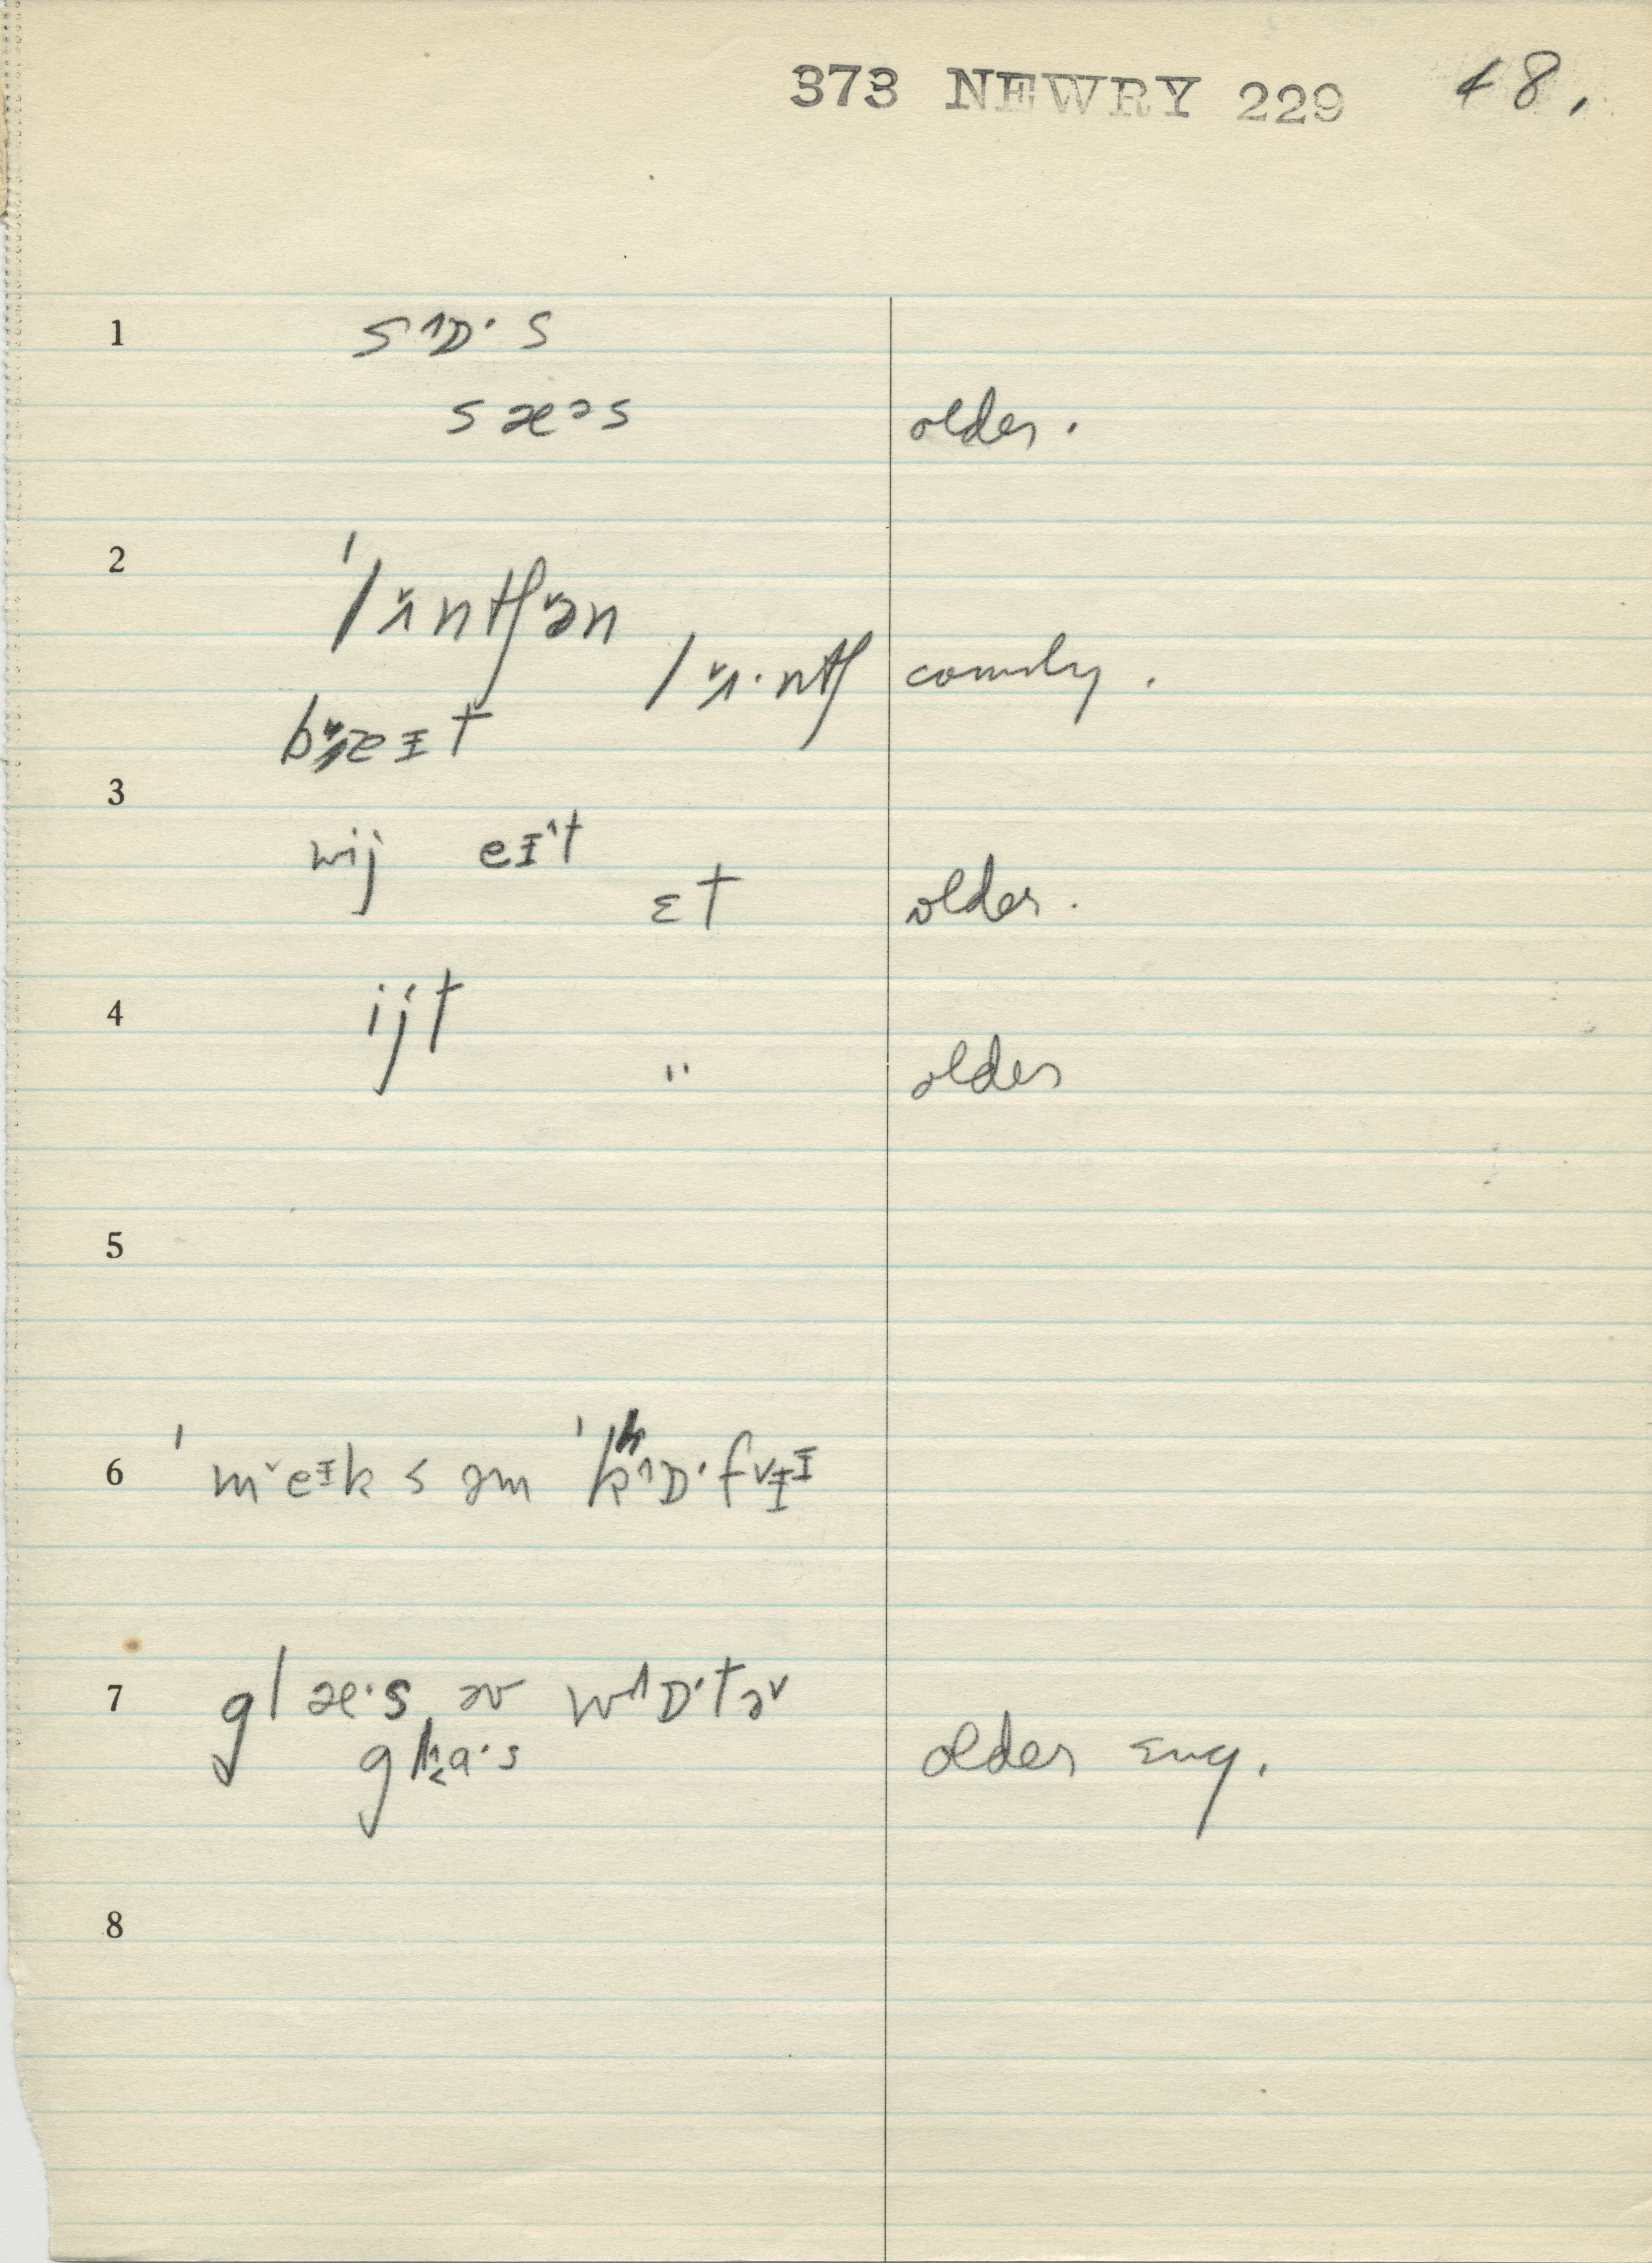 373 NEWRY 229 48.
1 s˄ɒ·s
sæᵊs older.
2 ˈlʌ̌ntʃə̌n
lʌ̌·ntʃ
bʌ̌ɪt
3 wij eᵻ˄t
ɛt older.
4 ijt
" older
5
6 ˈm˅eᵻks əm ˈkʰ˄ɒ·f˅ᵻᵻ
7 glæ·s əv w˄ɒ·tə˅
gla·s older Eng.
8